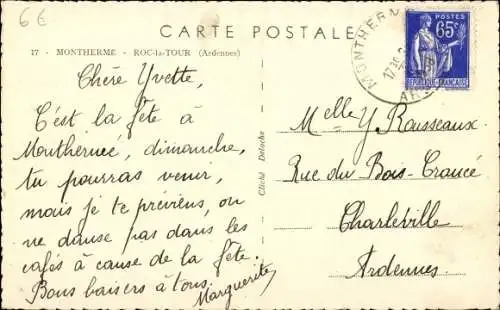 6€
CARTE POSTALE
17 - MONTHERME - ROC-la-TOUR (Ardennes)
POSTES
65c
REPUBLIQUE FRANÇAISE
MONTHERM
1730
ARD
Chère Yvette,
C'est la fête à
Monthermé, dimanche,
tu pourras venir,
mais je te préviens, on
ne danse pas dans les
cafés à cause de la fête.
Bons baisers à tous.
Marguerite
Cliché Detoche
Melle Y Rousseaux
Rue du Bois-Crancé
Charleville
Ardennes.